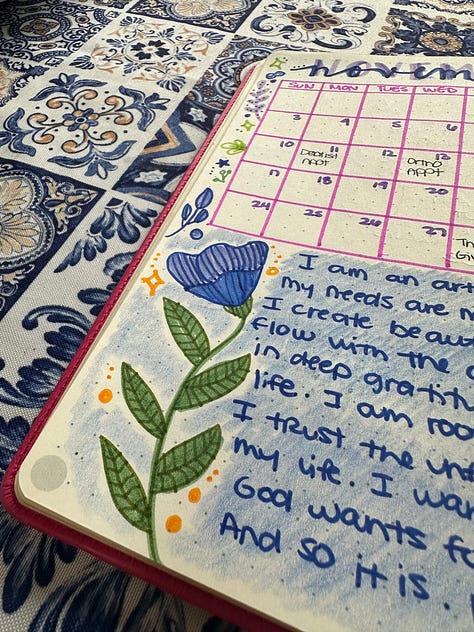 Novem
SUN MON TUES WED
3 4 5 6
10 11 12 13
Dentist Ortho
Appt Appt
17 18 19 20
24 25 26 27
Th
Giv
I am an art
my needs are
I create beaut
flow with the
in deep gratit
life. I am roo
I trust the un
my life. I wan
God wants fo
And so it is.